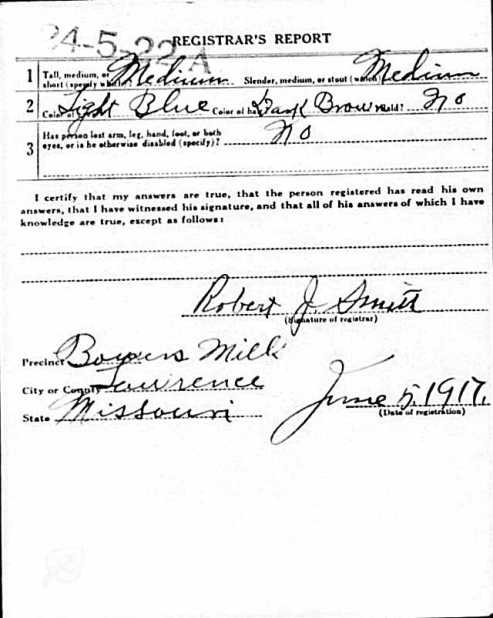 24-5-22 A
REGISTRAR'S REPORT
1 Tall, medium, or short (specify which)? Medium Slender, medium, or stout (which)? Medium
2 Color of eyes? Light Blue Color of hair? Dark Brown Bald? No
3 Has person lost arm, leg, hand, foot, or both
eyes, or is he otherwise disabled (specify)? No
I certify that my answers are true, that the person registered has read his own
answers, that I have witnessed his signature, and that all of his answers of which I have
knowledge are true, except as follows:
Robert J. Smith
(Signature of registrar)
Precinct Bowers Mill
City or County Lawrence
State Missouri
June 5, 1917.
(Date of registration)